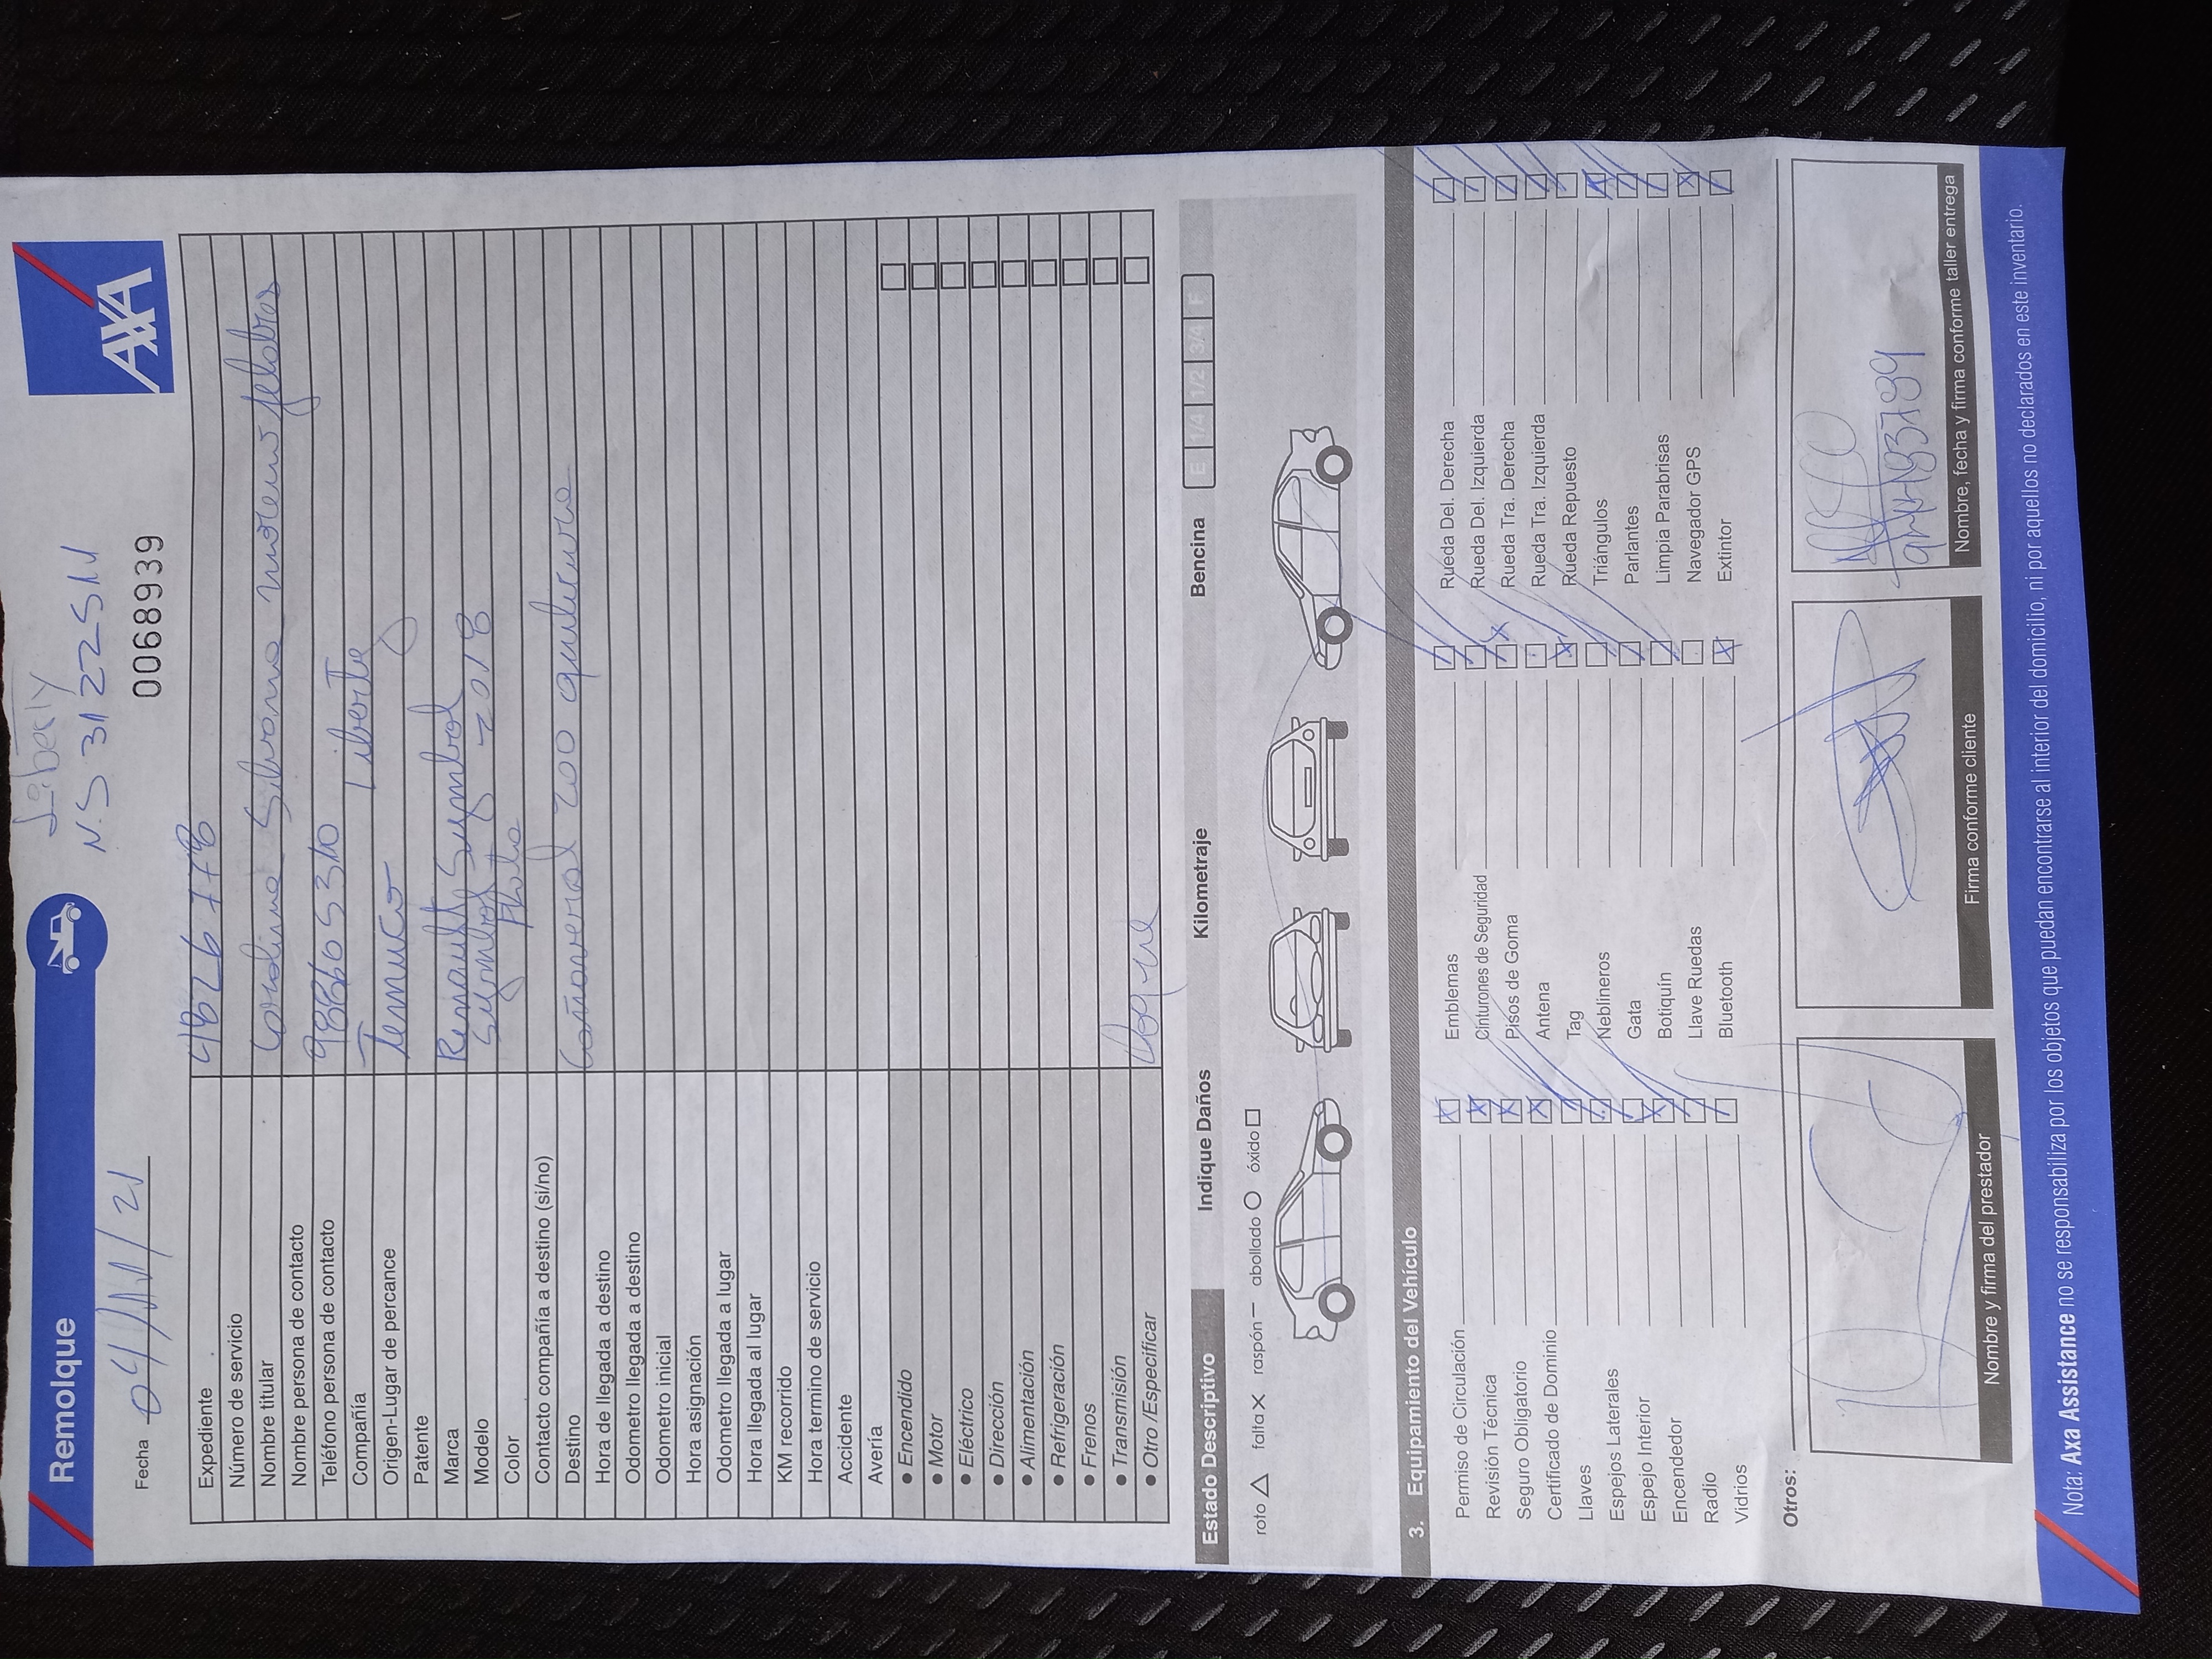 Remolque
AXA
Liberty
N.S 3122511
Fecha 04/11/21
0068939
Expediente 4826778
Número de servicio
Nombre titular Carolina Silvana moreno
Nombre persona de contacto
Teléfono persona de contacto 988605310
Compañía Liberty
Origen-Lugar de percance Temuco
Patente
Marca Renault Symbol
Modelo Symbol 2018
Color Plata
Contacto compañía a destino (si/no)
Destino Cañaveral 200 quilicura
Hora de llegada a destino
Odometro llegada a destino
Odometro inicial
Hora asignación
Odometro llegada a lugar
Hora llegada al lugar
KM recorrido
Hora termino de servicio
Accidente
Avería
• Encendido
• Motor
• Eléctrico
• Dirección
• Alimentación
• Refrigeración
• Frenos
• Transmisión
• Otro /Especificar choque
Estado Descriptivo Indique Daños Kilometraje Bencina E 1/4 1/2 3/4 F
roto falta raspón abollado óxido
3. Equipamiento del Vehículo
Permiso de Circulación Emblemas Rueda Del. Derecha
Revisión Técnica Cinturones de Seguridad Rueda Del. Izquierda
Seguro Obligatorio Pisos de Goma Rueda Tra. Derecha
Certificado de Dominio Antena Rueda Tra. Izquierda
Llaves Tag Rueda Repuesto
Espejos Laterales Neblineros Triángulos
Espejo Interior Gata Parlantes
Encendedor Botiquín Limpia Parabrisas
Radio Llave Ruedas Navegador GPS
Vidrios Bluetooth Extintor
Otros:
Nombre y firma del prestador
Firma conforme cliente
Nombre, fecha y firma conforme taller entrega
Nota: Axa Assistance no se responsabiliza por los objetos que puedan encontrarse al interior del domicilio, ni por aquellos no declarados en este inventario.